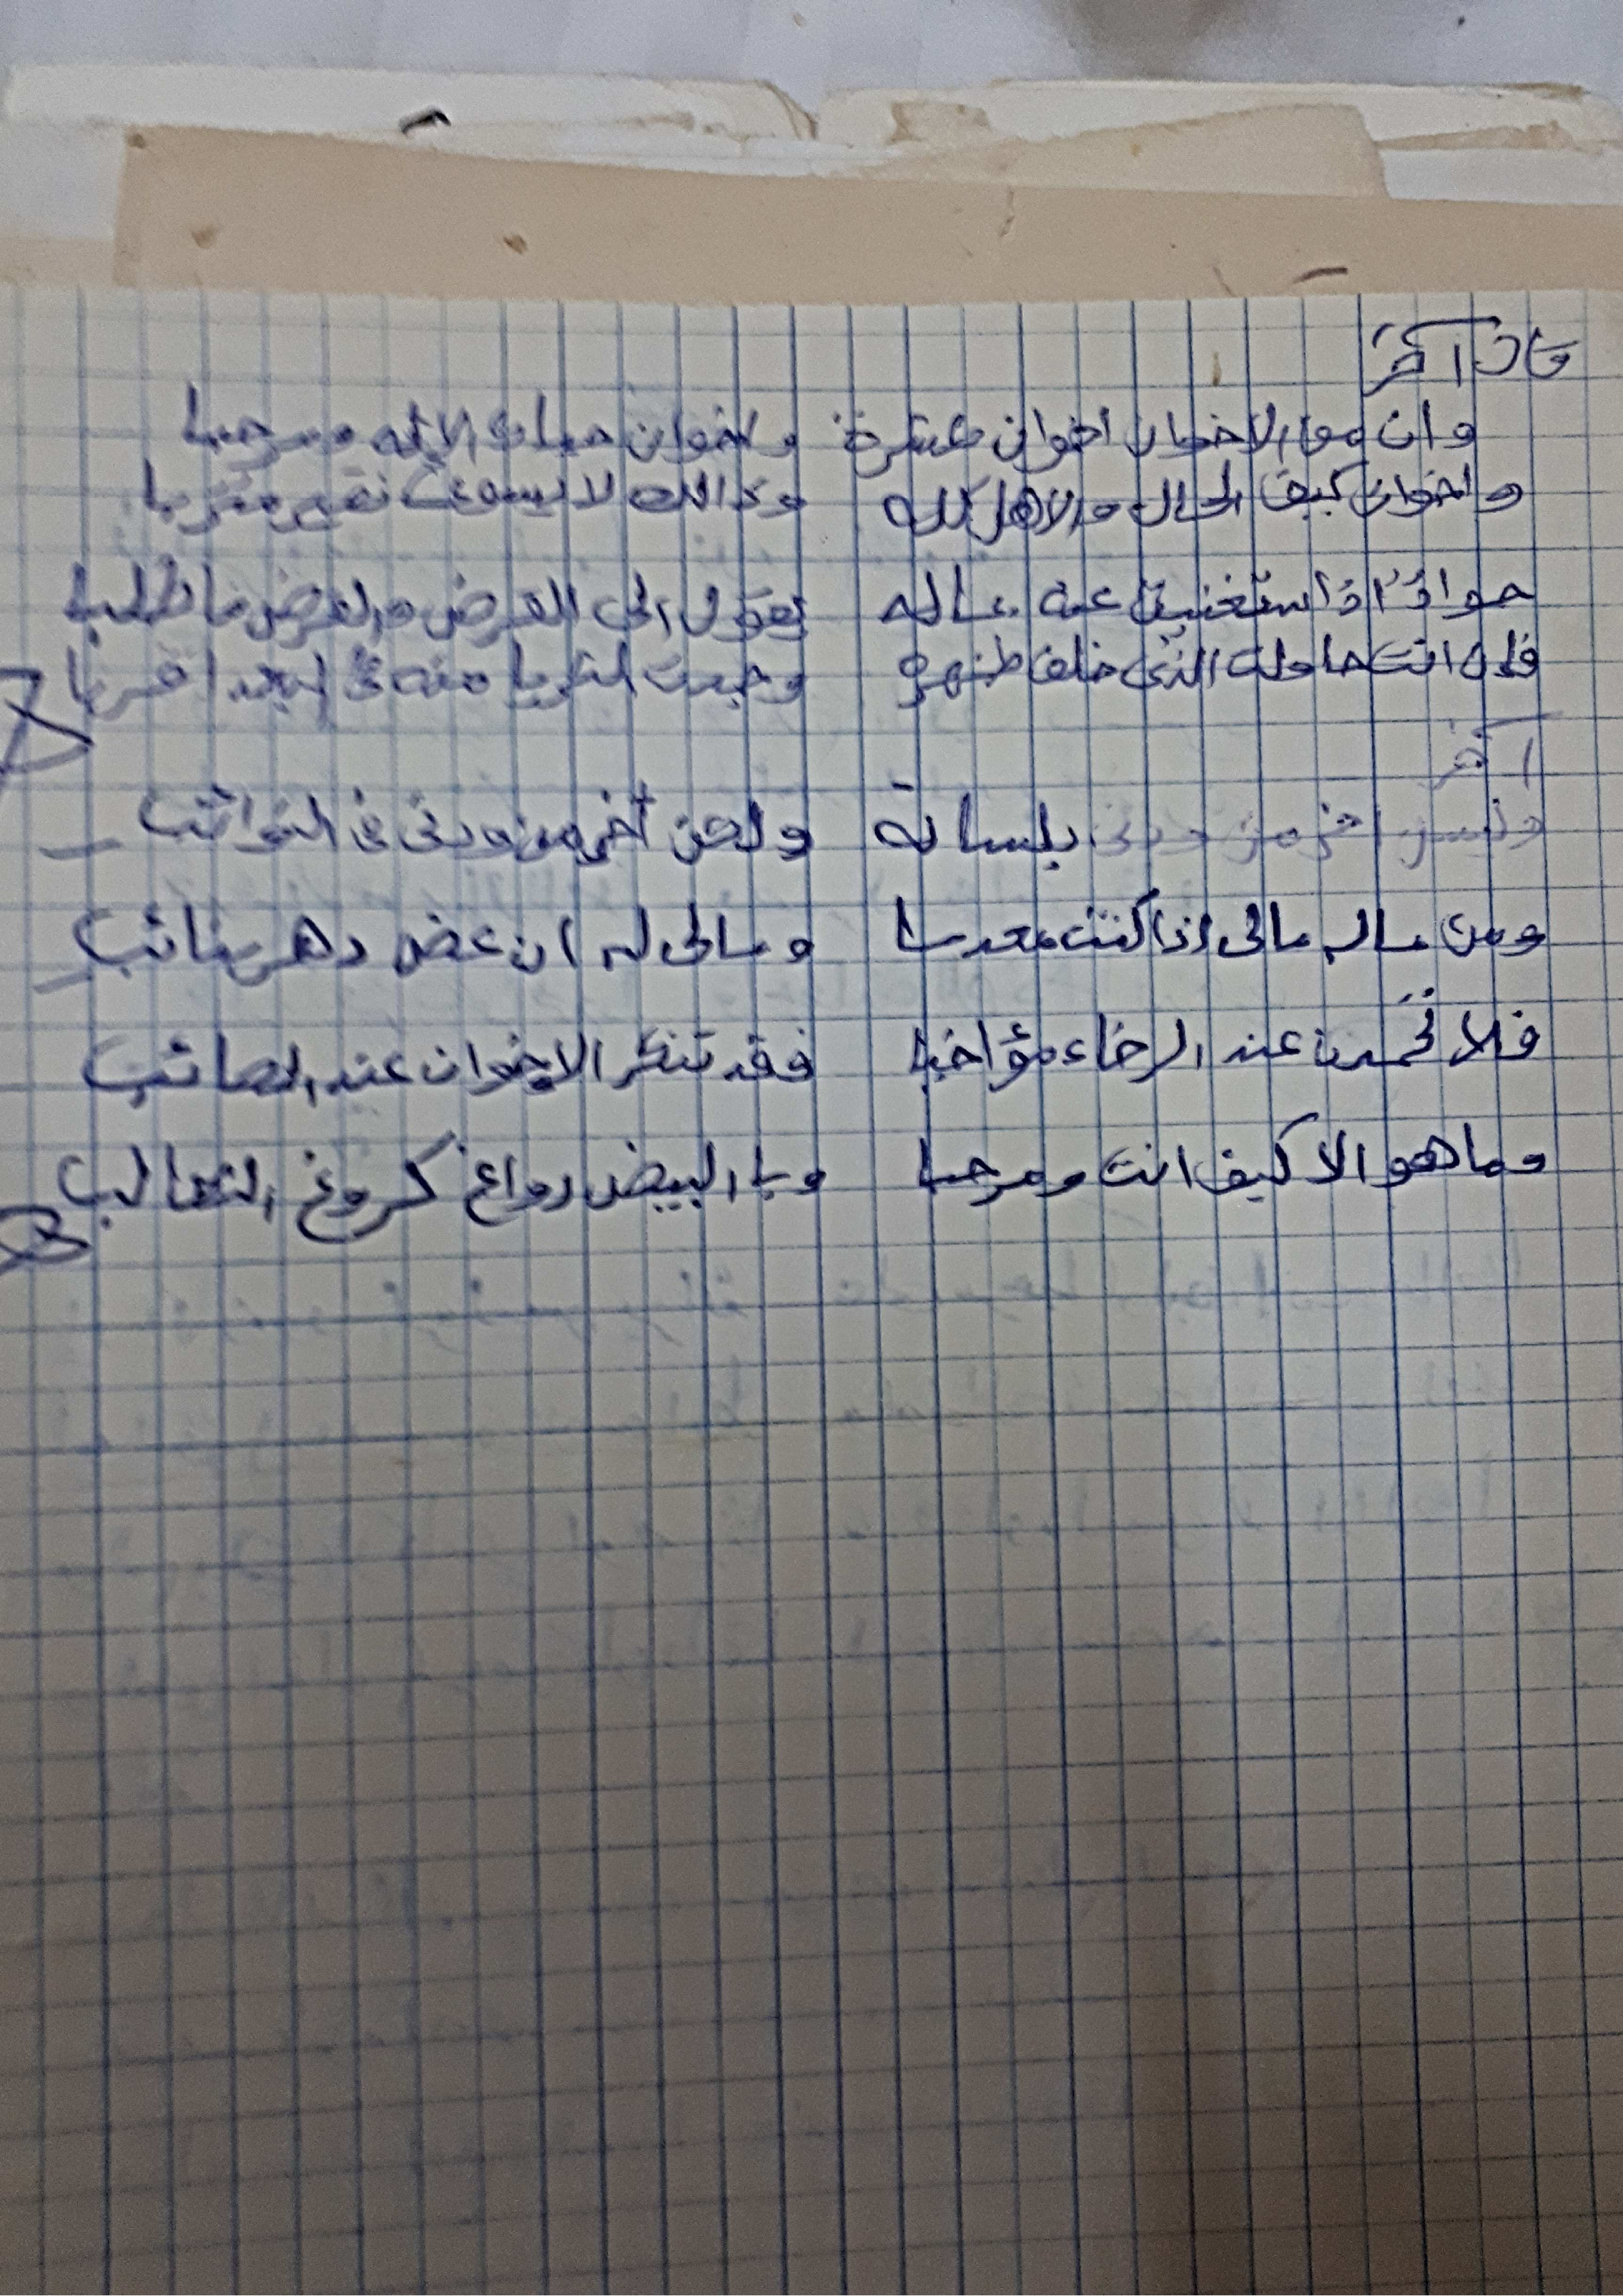 قال آخر
وان من الاخوان اخوان عشرة واخوان حياك الاله ومرحبا
واخوان كيف الحال والاهل كله وذالك لا يسوى نقير متربا
جواد اذا استغنيت عنه بماله يقول الى القرض والقرض فاطلبا
فان انت حاولت الذى خلف ظهره وجدت الثريا منه فى البعد اقربا
آخر
وليس اخى من ودنى بلسانه ولكن أخى من ودنى فى النوائب
ومن ماله مالى اذا كنت معدما ومالى له ان عض دهر بنائب
فلا تحمدن عند الرخاء مؤاخيا فقد تنكر الاخوان عند المصائب
وما هو الا كيف انت ومرحبا وبالبيض رواغ كروغ الثعالب